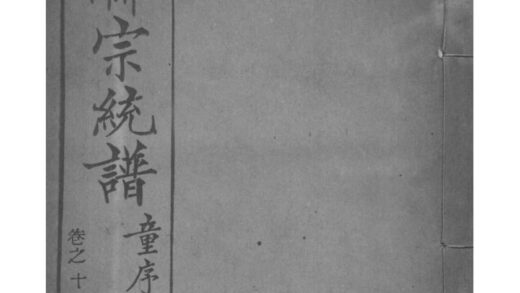 宗統譜
童序
卷之十